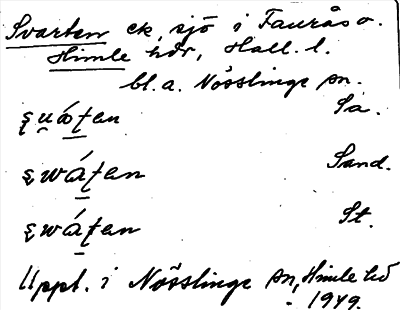 Svarten ck, sjö i Faurås o.
Himle hdr, Hall. l.
bl. a. Nösslinge sn.
ʂu̯áʈen Sa.
ʂwáʈen Sand.
ʂwáʈen St.
Uppt. i Nösslinge sn, Himle hd
- 1949.